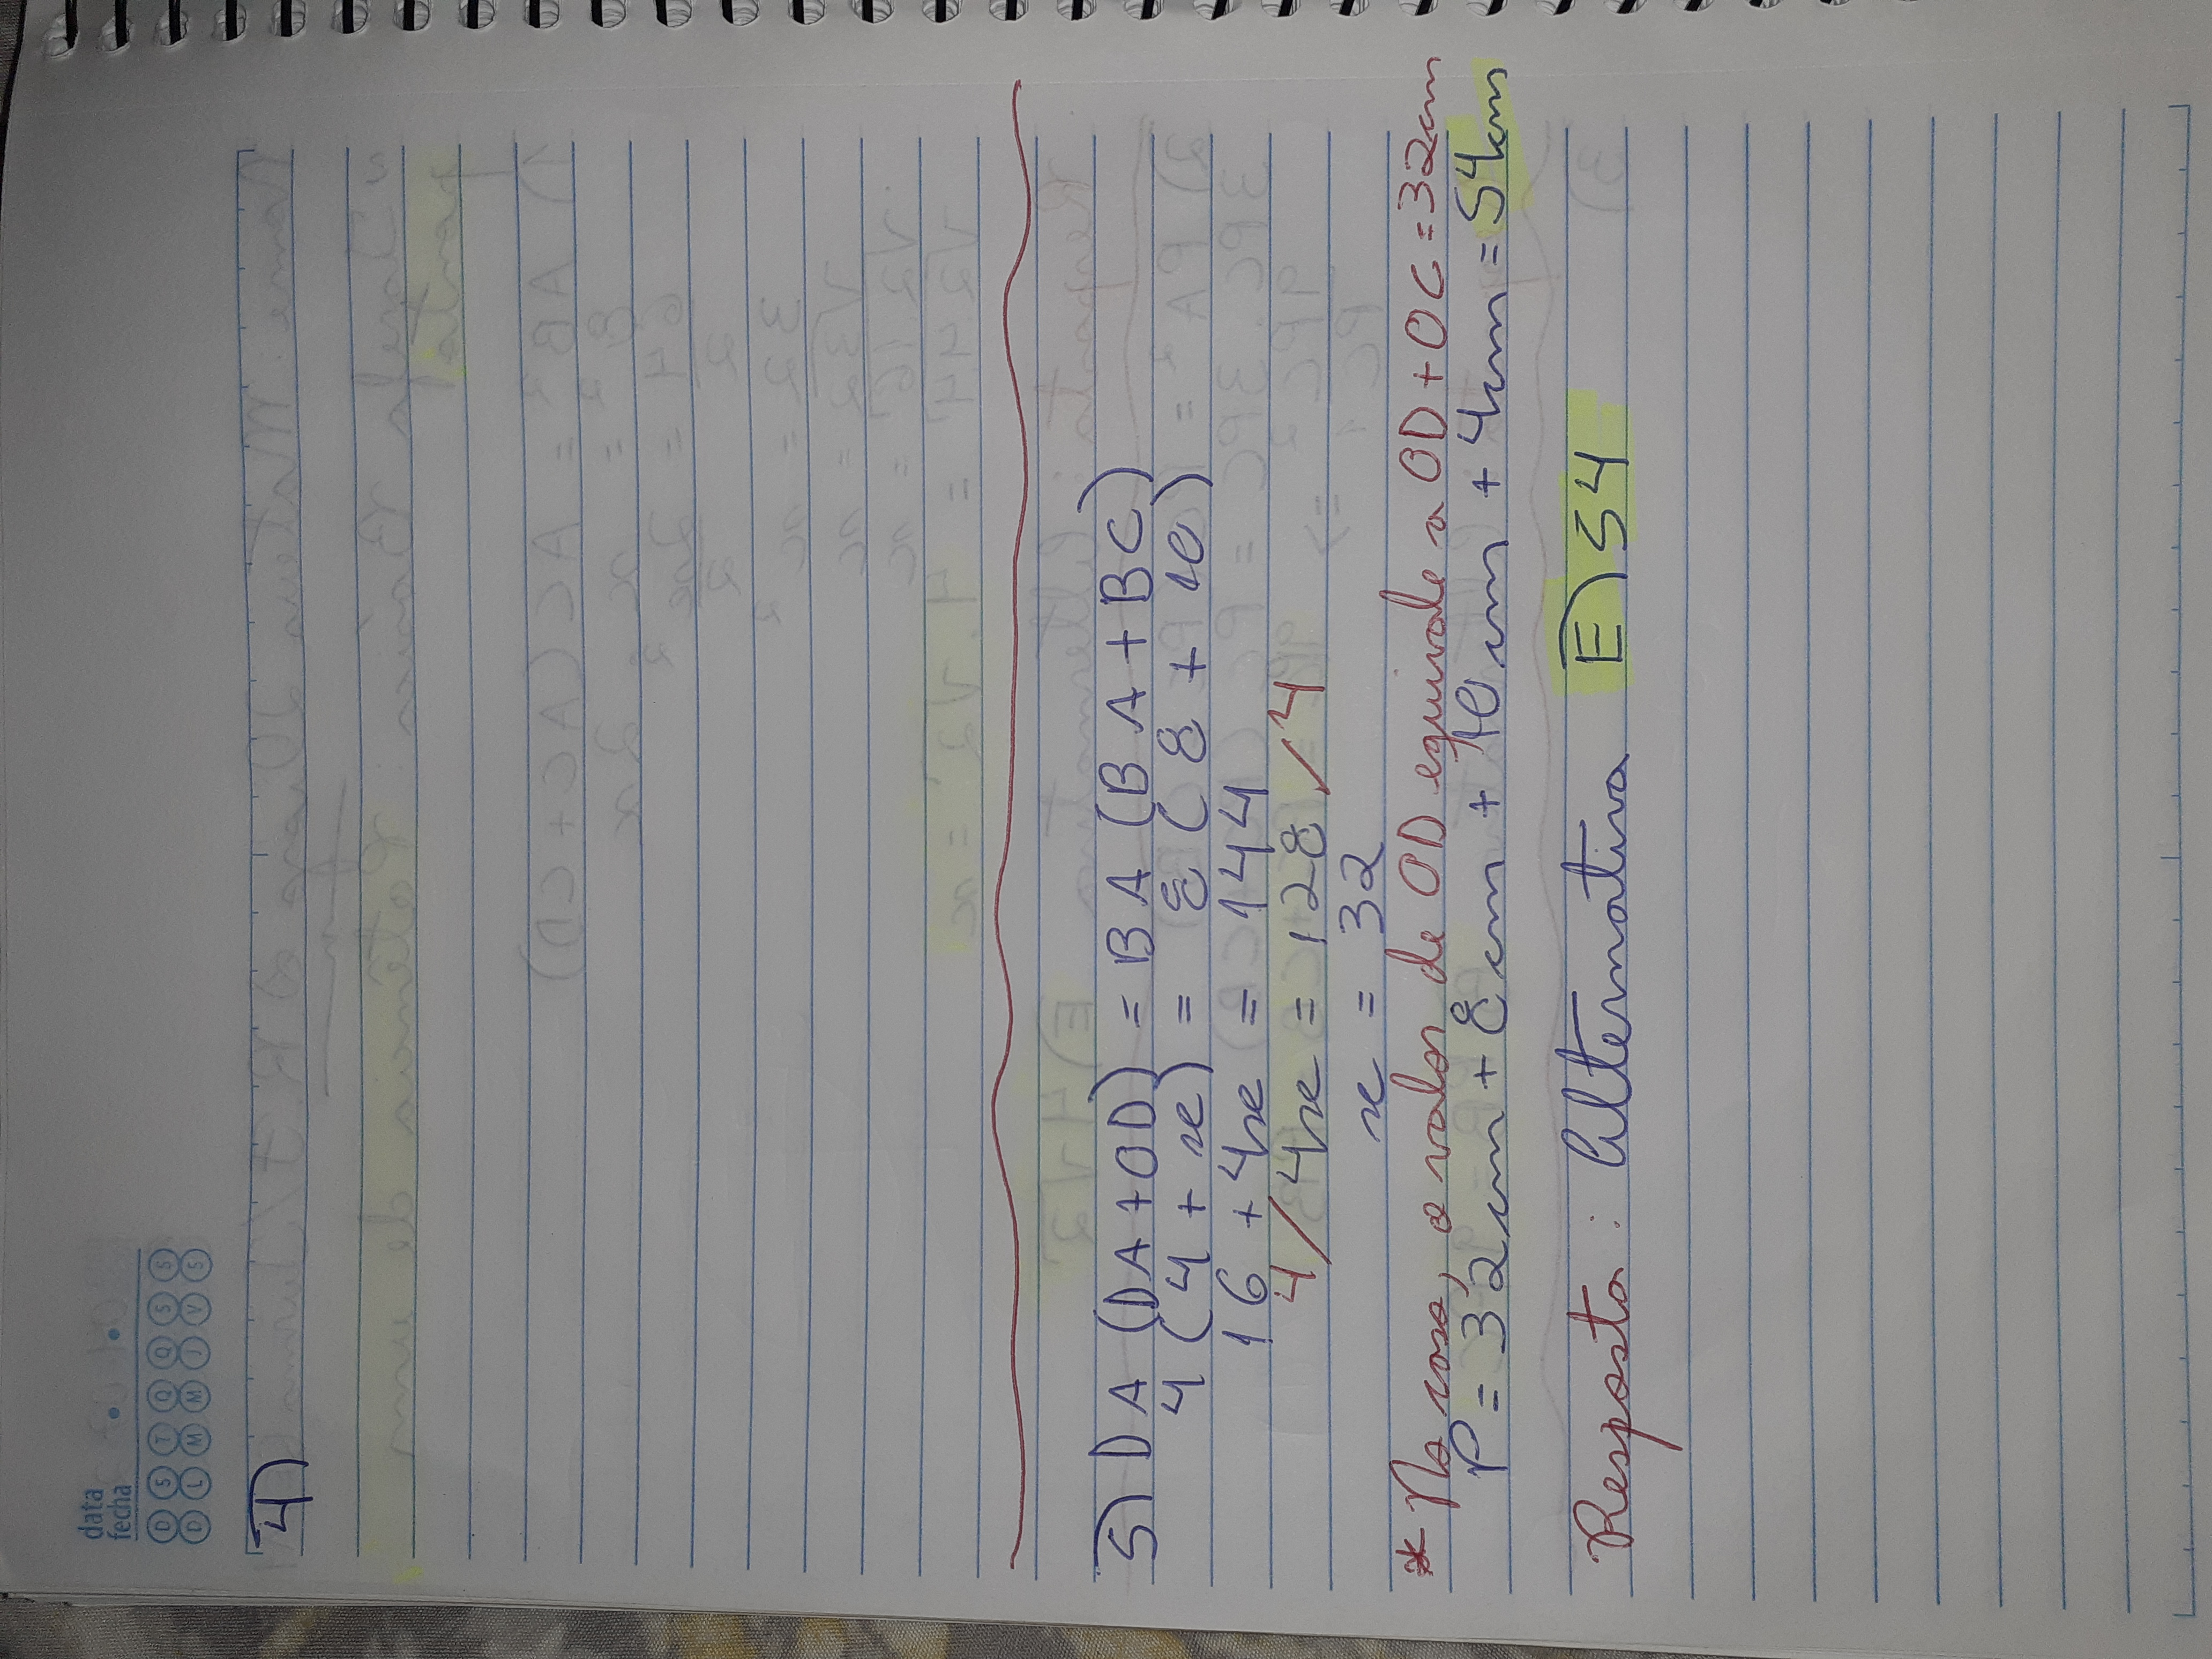 data
fecha
D S T Q Q S S
D L M M J V S
4)
5) DA (DA+OD) = BA (BA+BC)
4 (4 + x) = 8 (8 + 10)
16 + 4x = 144
4/ 4x = 128 /4
x = 32
* No caso, o valor de OD equivale a OD+OC=32cm
P = 32cm + 8cm + 10cm + 4cm = 54cm
Resposta: Alternativa E) 54